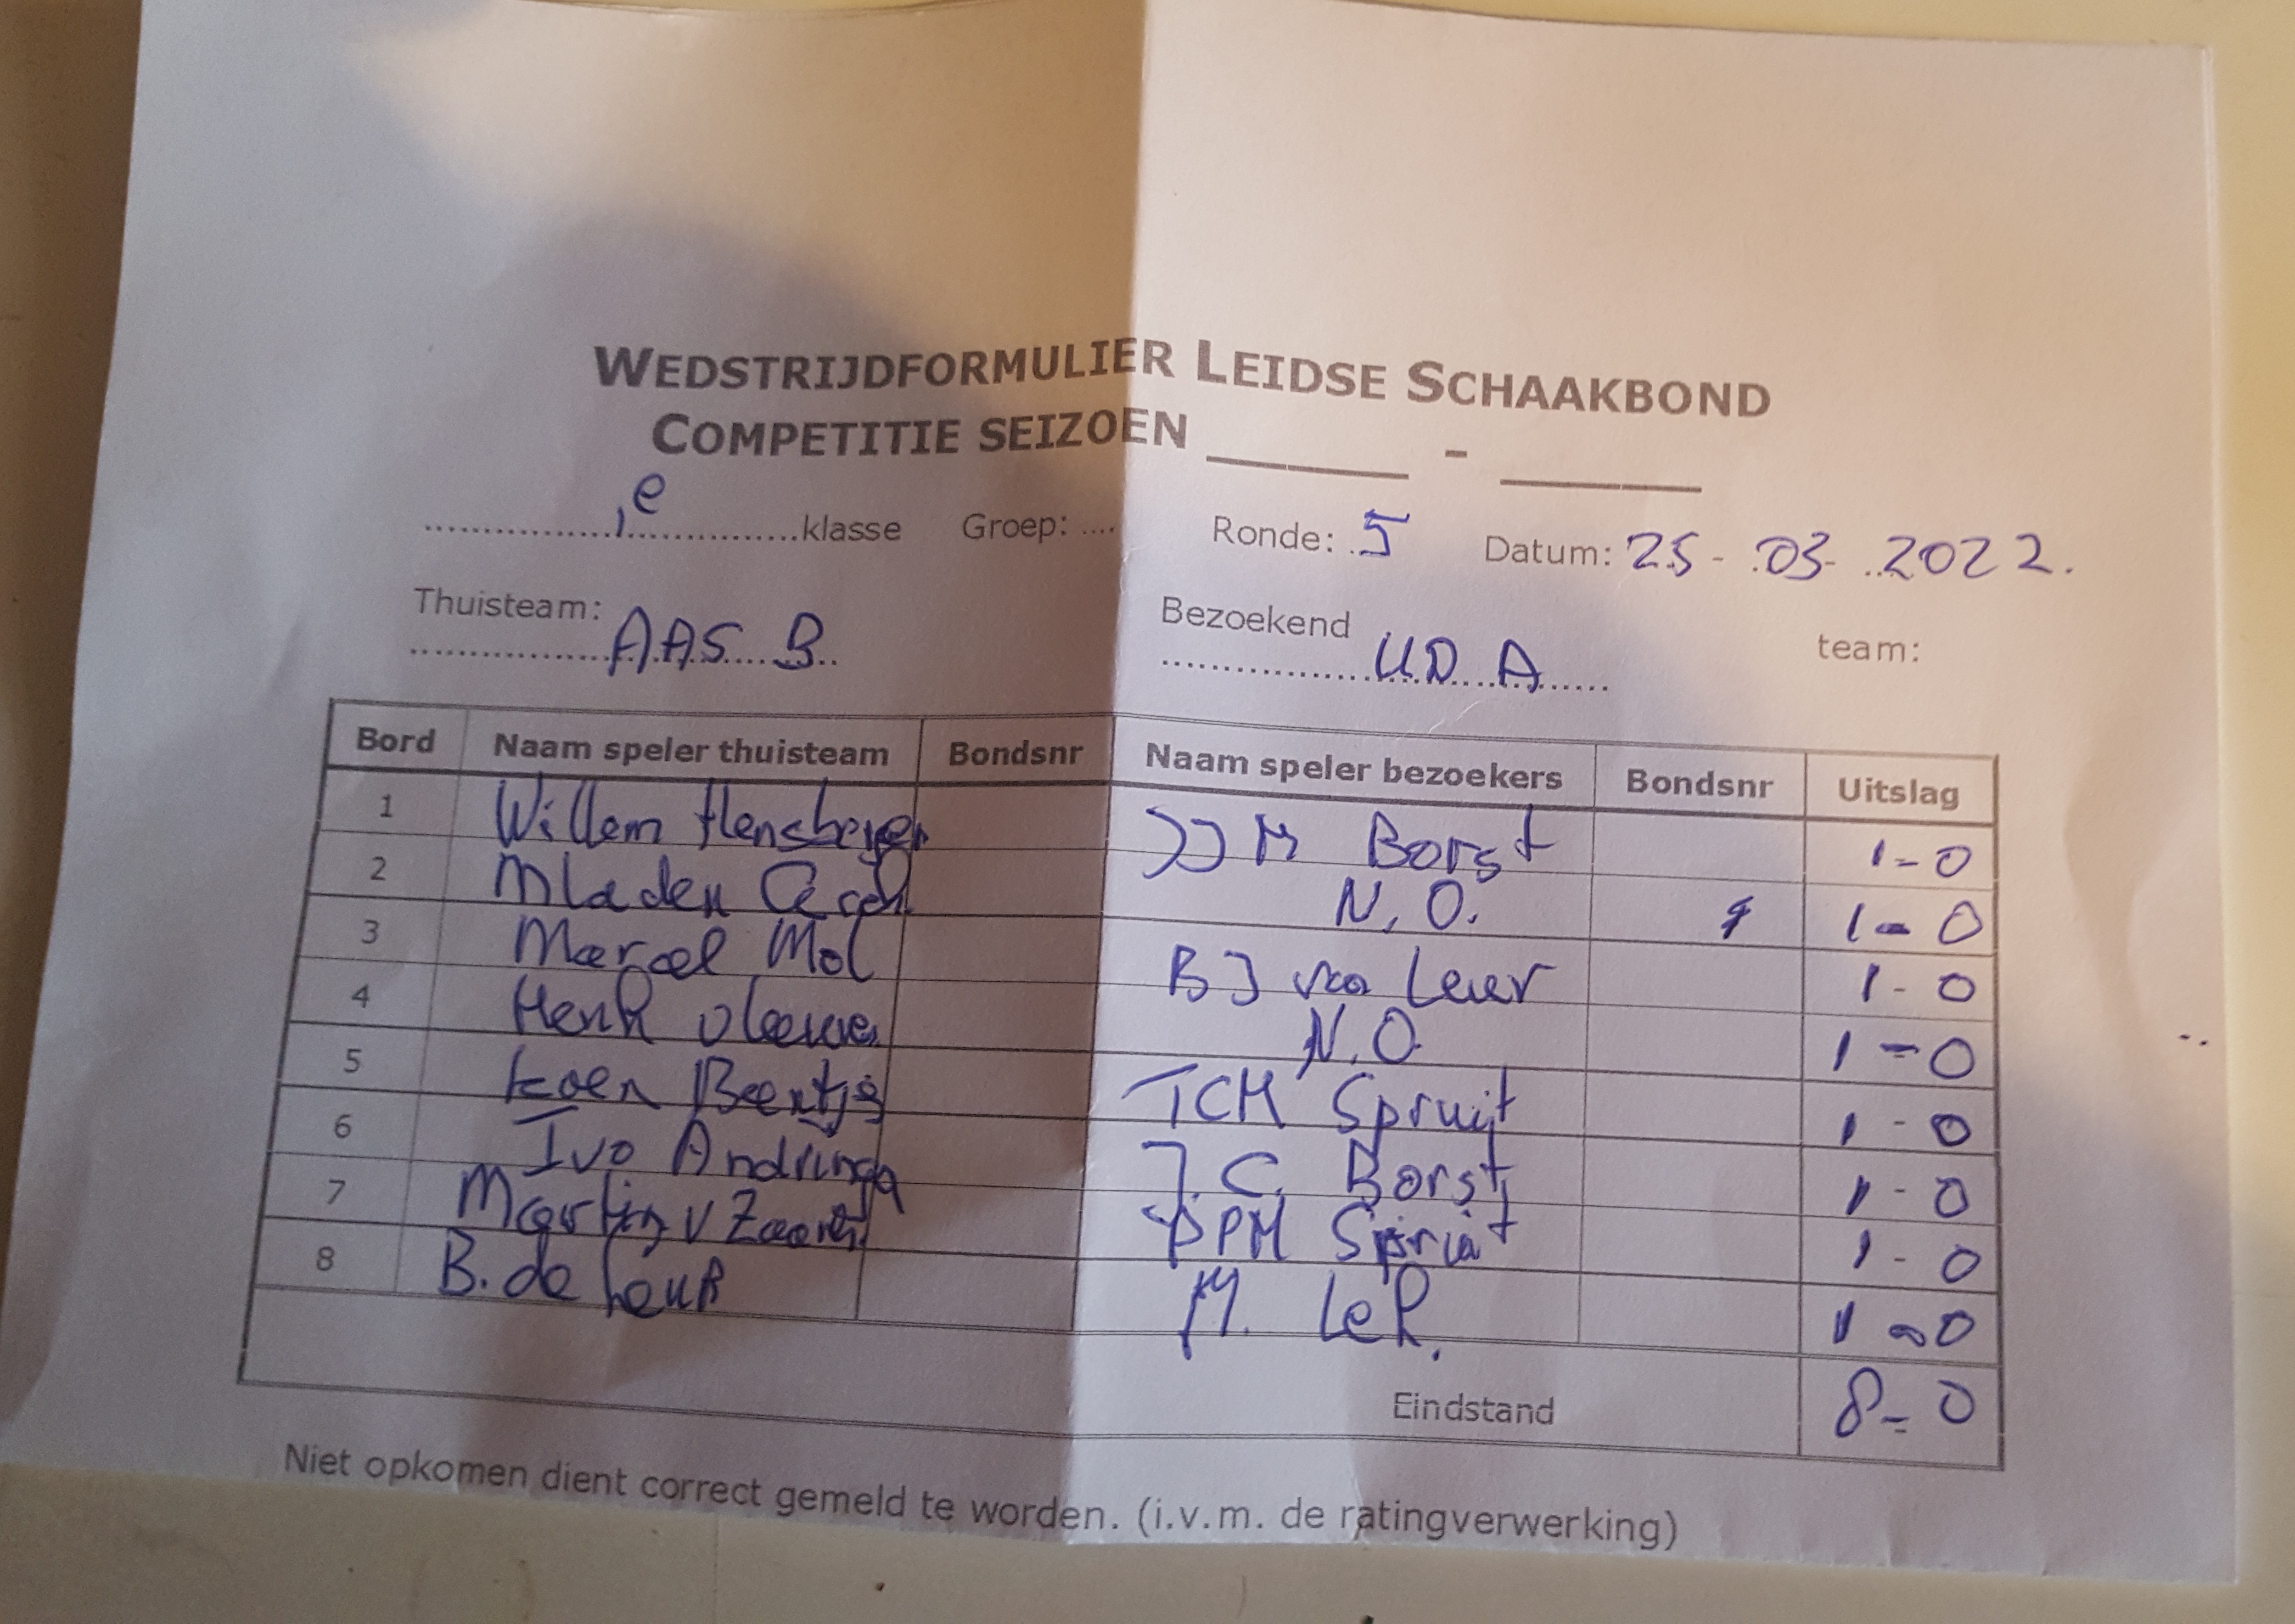 WEDSTRIJDFORMULIER LEIDSE SCHAAKBOND
COMPETITIE SEIZOEN ______ - ______
1e klasse Groep: .... Ronde: 5 Datum: 25-03-2022.
Thuisteam: Bezoekend team:
AAS B U.D. A
Bord Naam speler thuisteam Bondsnr Naam speler bezoekers Bondsnr Uitslag
1 Willem JJM Borst 1-0
2 Mladen N.O. 1-0
3 Marcel Mol BJ van Leer 1-0
4 Henk N.O. 1-0
5 Koen Beentjes TCM Spruijt 1-0
6 Ivo Andringa J.C. Borst 1-0
7 Martin v Zaanen PM Spruit 1-0
8 B. de Leur M. Lek. 1-0
Eindstand 8-0
Niet opkomen dient correct gemeld te worden. (i.v.m. de ratingverwerking)